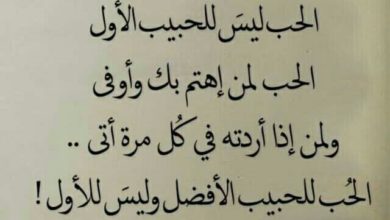 الحب ليسَ للحبيب الأول
الحب لمن إهتم بك وأوفى
ولمن إذا أردته في كُل مرة أتى ..
الحُب للحبيب الأفضل وليسَ للأول !